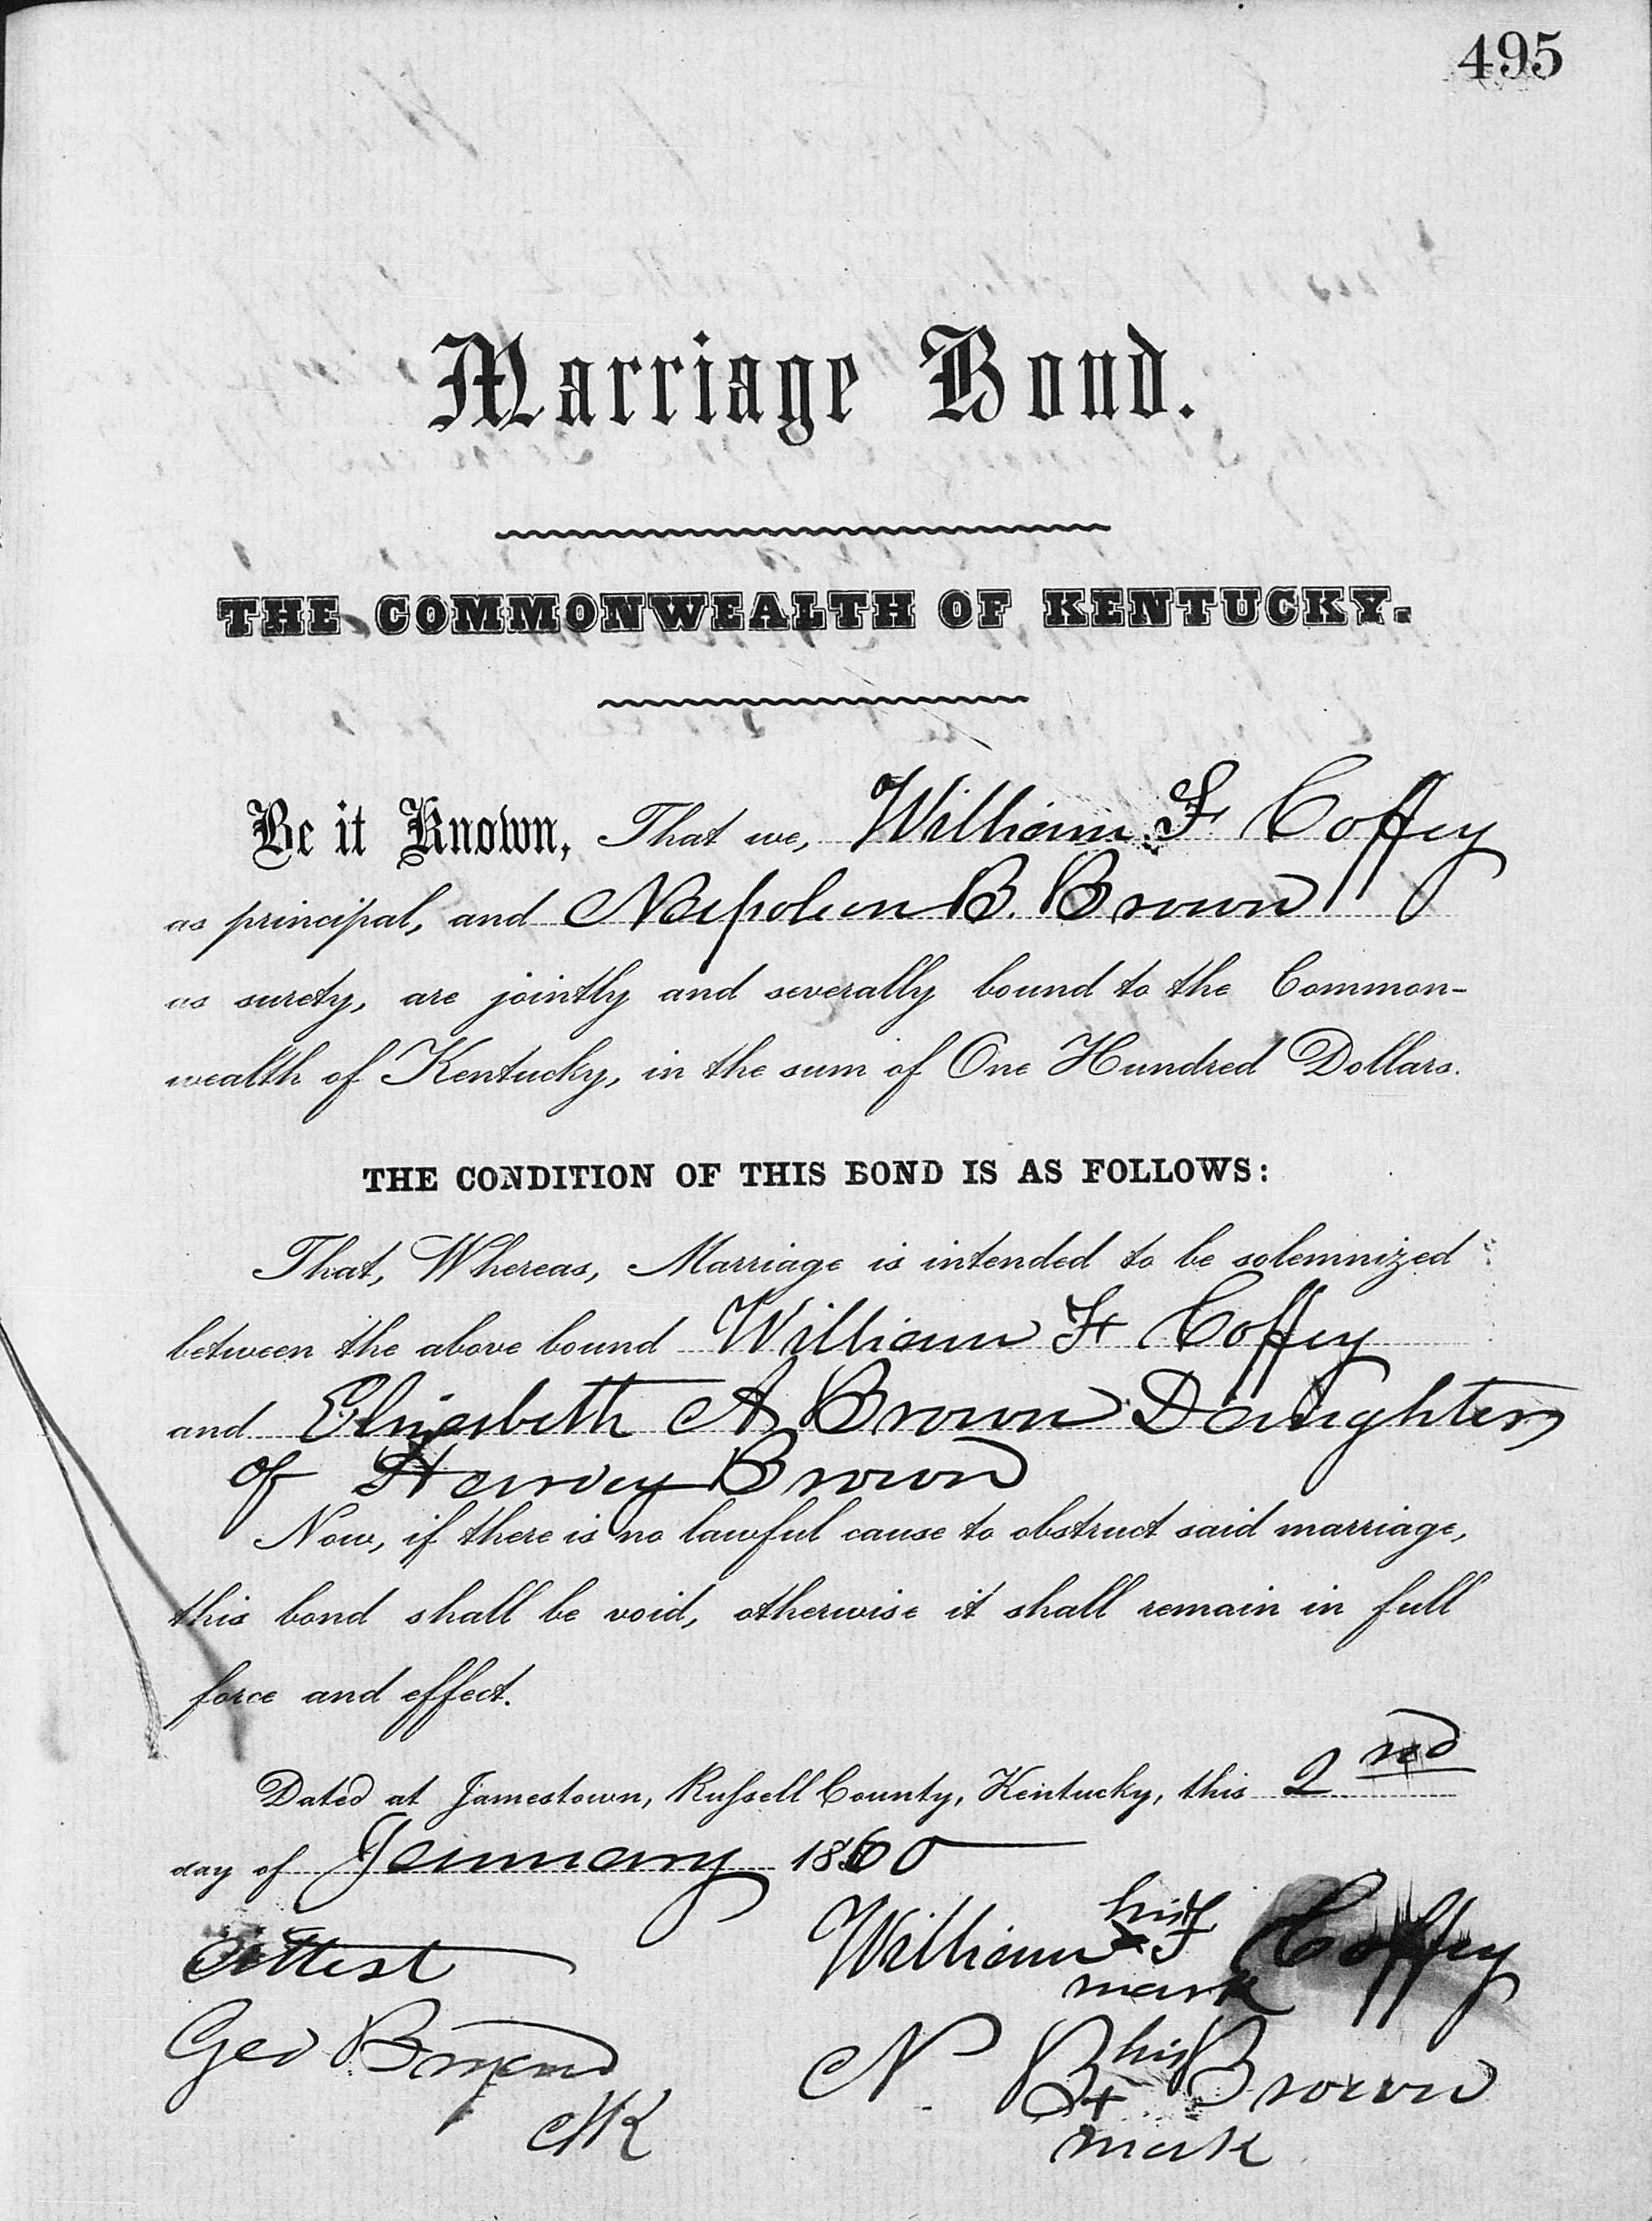 495
Marriage Bond.
THE COMMONWEALTH OF KENTUCKY.
Be it Known, That we, William F Coffey
as principal, and Napoleon B. Brown
as surety, are jointly and severally bound to the Common-
wealth of Kentucky, in the sum of One Hundred Dollars.
THE CONDITION OF THIS BOND IS AS FOLLOWS:
That, Whereas, Marriage is intended to be solemnized
between the above bound William F Coffey
and Elizabeth A Brown Daughter
of Harvey Brown
Now, if there is no lawful cause to obstruct said marriage,
this bond shall be void, otherwise it shall remain in full
force and effect.
Dated at Jamestown, Russell County, Kentucky, this 2nd
day of January 1860
his
Attest William x F Coffey
mark
Geo his
N B + Brown
mark